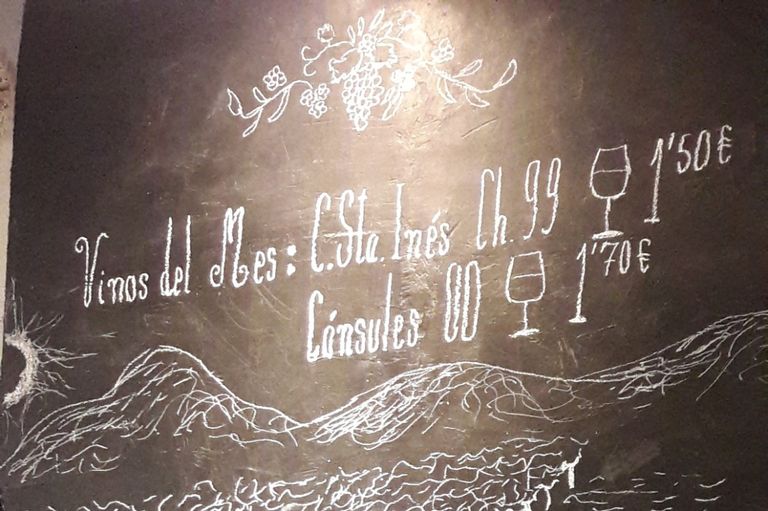 Vinos del Mes: C. Sta. Inés Ch. 99 1'50€
Cánsules 00 1'70€